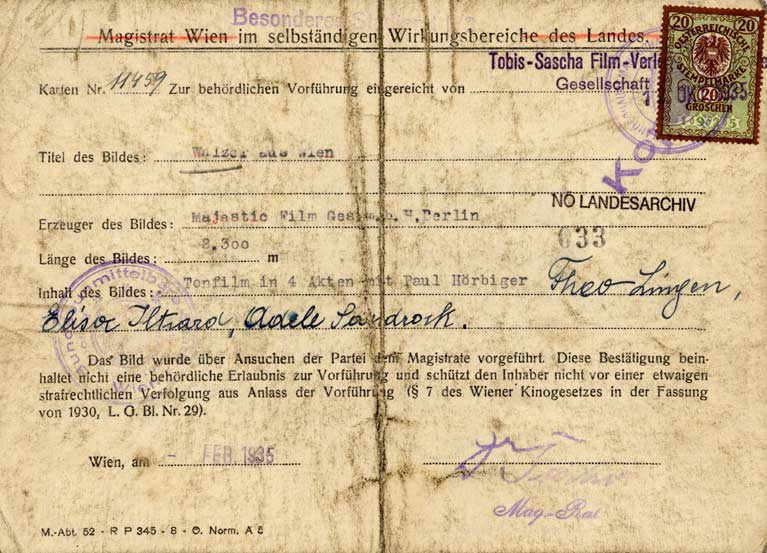 Besonderes
Magistrat Wien im selbständigen Wirkungsbereiche des Landes.
Tobis-Sascha Film-Verl
Gesellschaft
Karten Nr. 11459 Zur behördlichen Vorführung eingereicht von
20 20
OESTERREICHISCHE
STEMPELMARKE
20
GROSCHEN
1925
OKT. 1935
Titel des Bildes: Walzer aus Wien
NÖ LANDESARCHIV
Erzeuger des Bildes: Majestic Film Ges.m.b.H. Berlin
633
Länge des Bildes: 2,300 m
Inhalt des Bildes: Tonfilm in 4 Akten mit Paul Hörbiger Theo Lingen,
Adele Sandrock.
Das Bild wurde über Ansuchen der Partei dem Magistrate vorgeführt. Diese Bestätigung bein-
haltet nicht eine behördliche Erlaubnis zur Vorführung und schützt den Inhaber nicht vor einer etwaigen
strafrechtlichen Verfolgung aus Anlass der Vorführung (§ 7 des Wiener Kinogesetzes in der Fassung
von 1930, L. G. Bl. Nr. 29).
Wien, am - FEB. 1935
Mag-Rat
M.-Abt. 52 - R P 345 - 8 - Ö. Norm. A 5